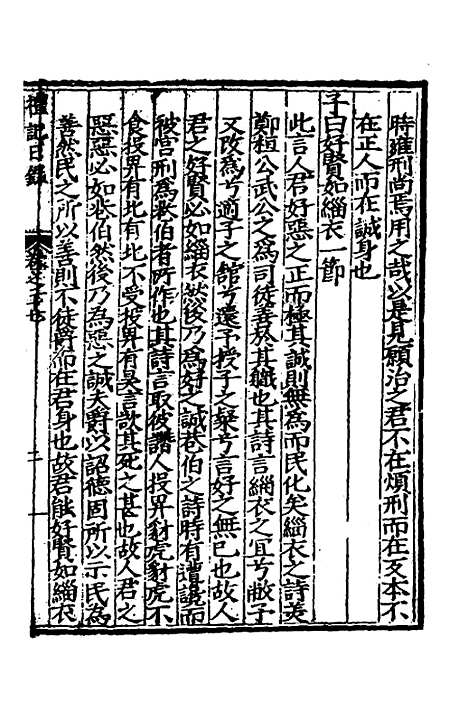 時雍刑尚焉用之哉以是見願治之君不在煩刑而在反本不
在正人而在誠身也
子曰好賢如緇衣一節
此言人君好惡之正而極其誠則無為而民化矣緇衣之詩美
鄭桓公武公之為司徒善於其職也其詩言緇衣之宜兮敝予
又改為兮適子之館兮還予授子之粲兮言好之無已也故人
君之好賢必如緇衣然後乃為好之誠巷伯之詩時有遭讒而
被宮刑為巷伯者所作也其詩言取彼譖人投畀豺虎豺虎不
食投畀有北有北不受投畀有昊言欲其死之甚也故人君之
惡惡必如巷伯然後乃為惡之誠夫爵以詔德固所以示民為
善然民之所以善則不徒爵而在君身也故君能好賢如緇衣
禮記日錄
二